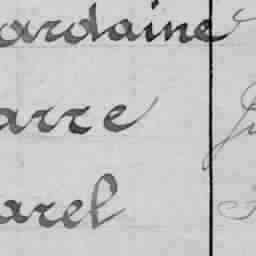 ardaine
arre
arel